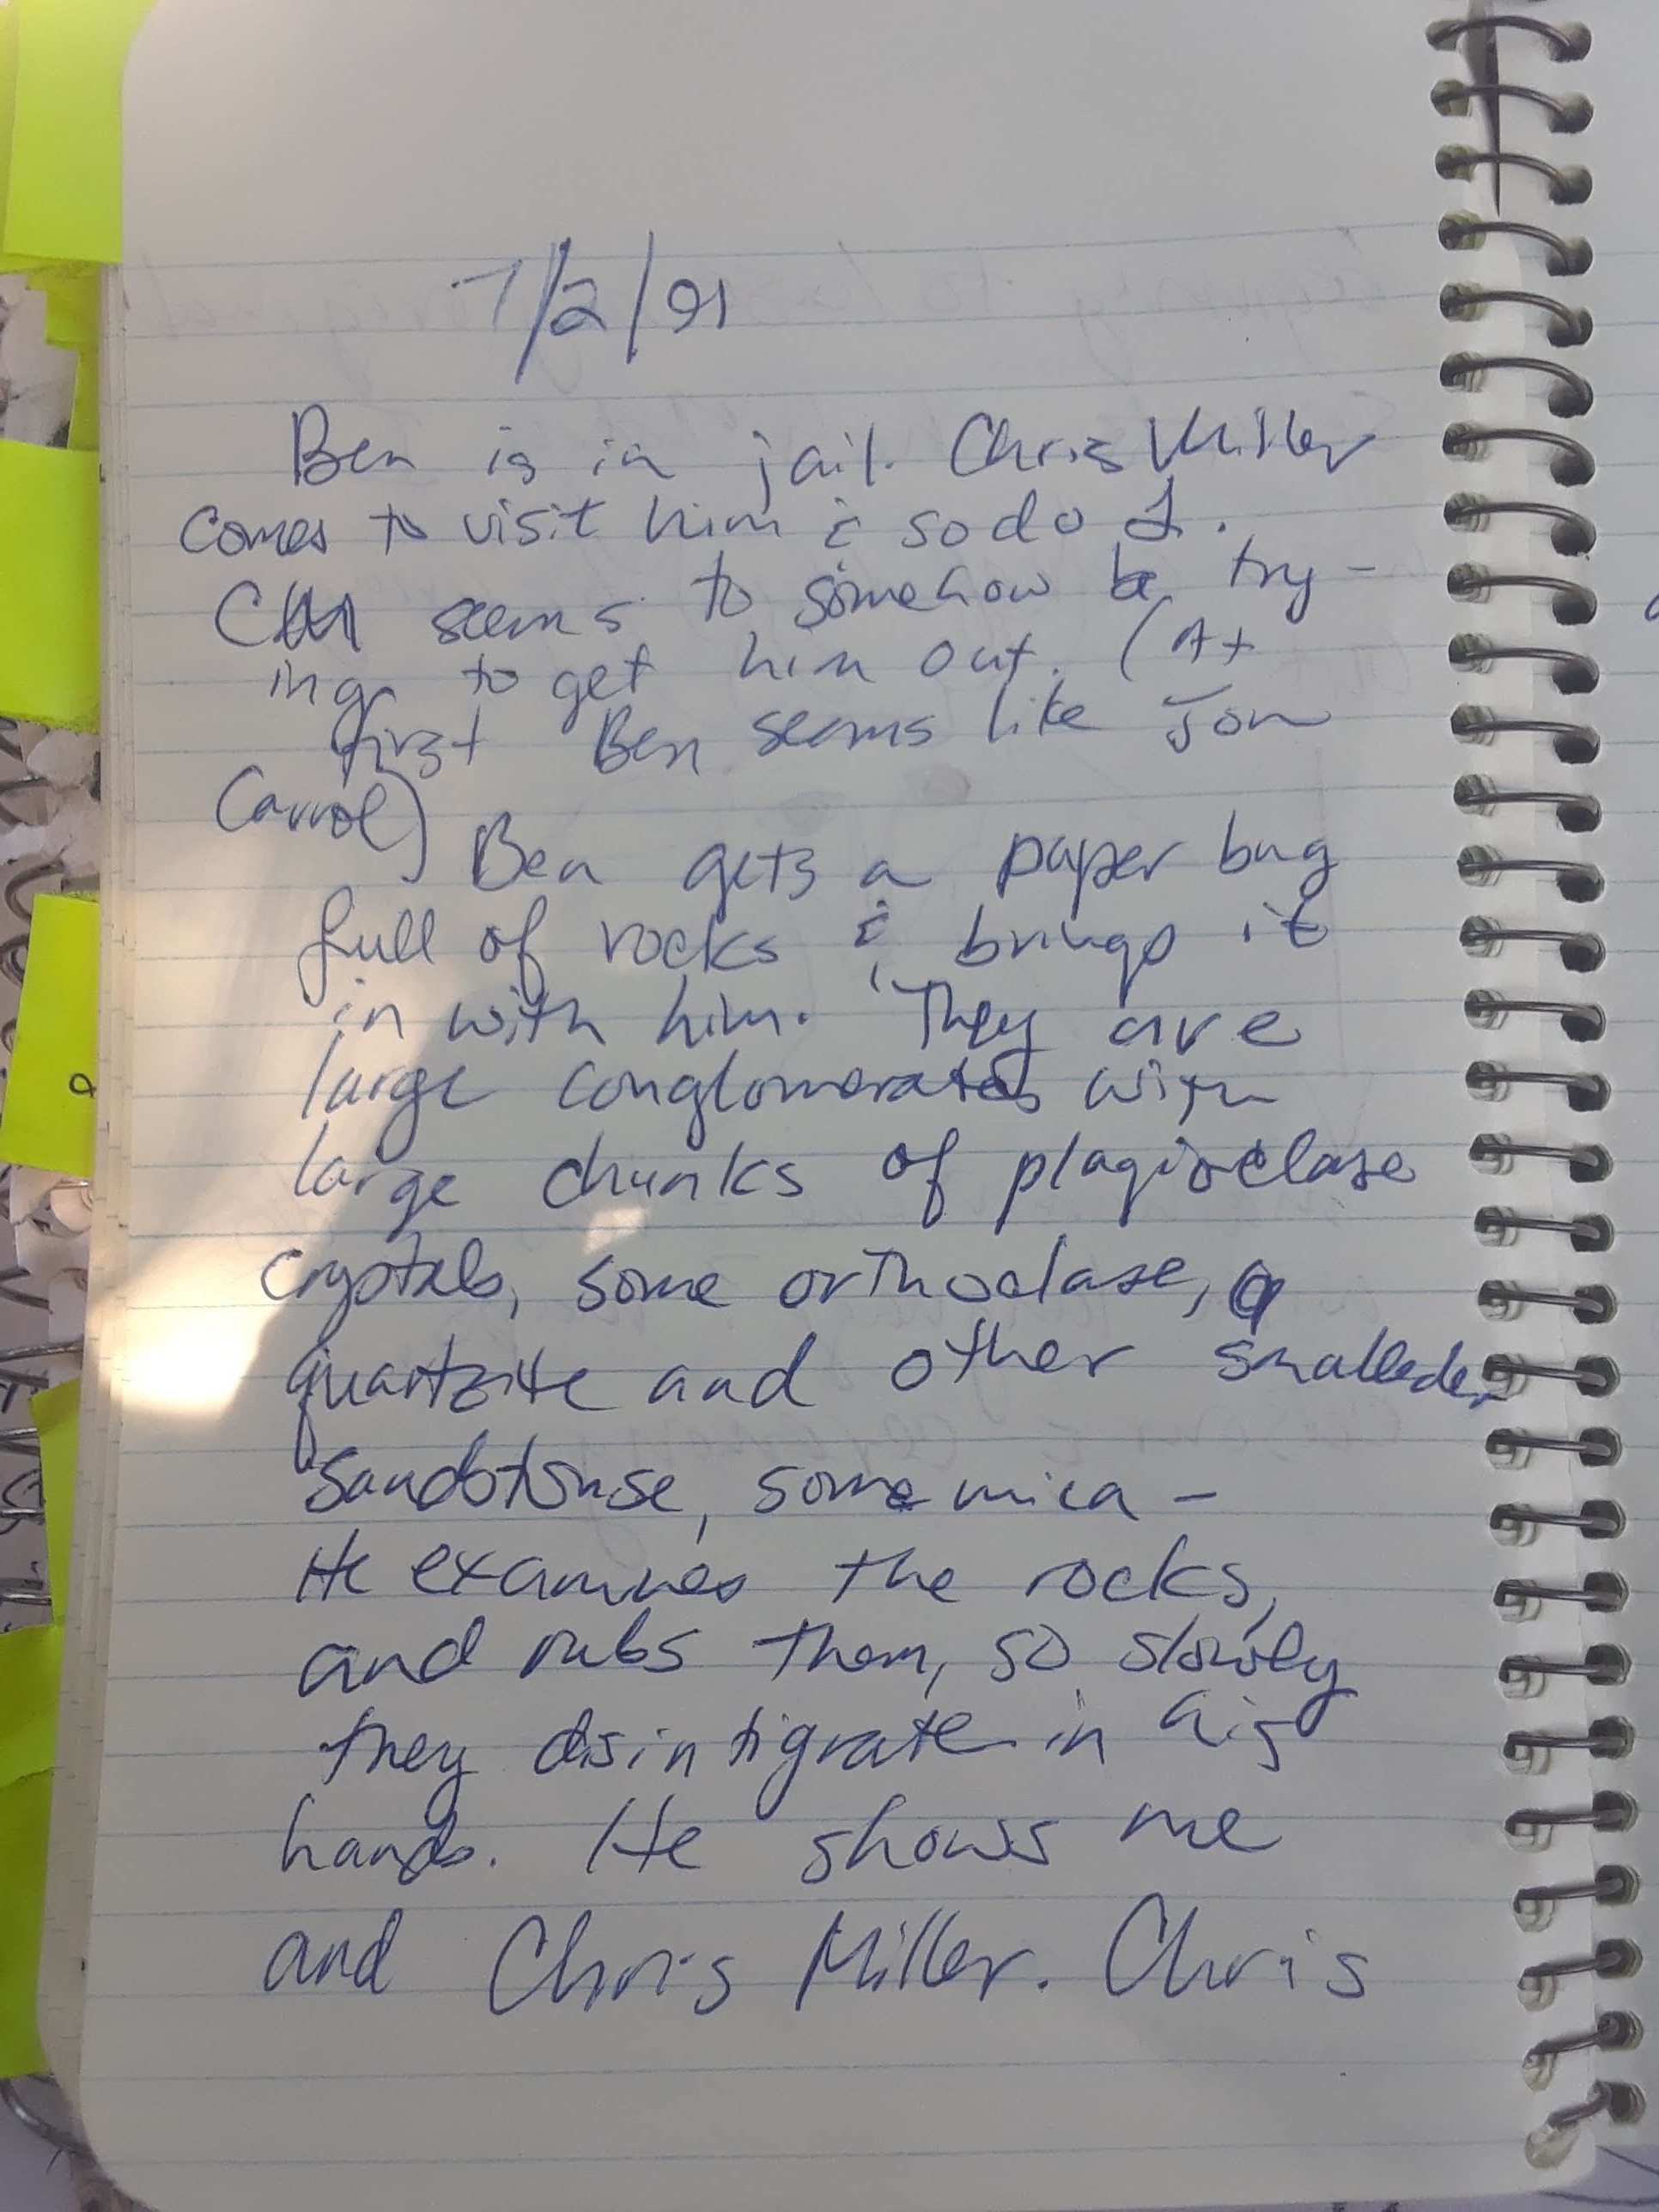 7/2/91
Ben is in jail. Chris Miller
comes to visit him & so do I.
CM seems to somehow be try-
ing to get him out. (At
first Ben seems like Jon
Carrol)
Ben gets a paper bag
full of rocks & brings it
in with him. They are
large conglomerates with
large chunks of plagioclase
crystals, some orthoclase,
quartzite and other
sandstonse, some mica -
He examines the rocks,
and rubs them, so slowly
they disintigrate in his
hands. He shows me
and Chris Miller. Chris